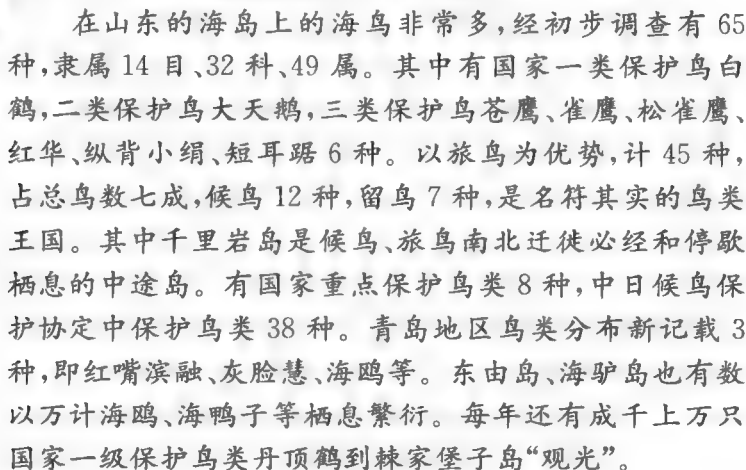 在山东的海岛上的海鸟非常多,经初步调查有 65
种,隶属 14 目、32 科、49 属。其中有国家一类保护鸟白
鹤,二类保护鸟大天鹅,三类保护鸟苍鹰、雀鹰、松雀鹰、
红华、纵背小绢、短耳踞 6 种。以旅鸟为优势,计 45 种,
占总鸟数七成,候鸟 12 种,留鸟 7 种,是名符其实的鸟类
王国。其中千里岩岛是候鸟、旅鸟南北迁徙必经和停歇
栖息的中途岛。有国家重点保护鸟类 8 种,中日候鸟保
护协定中保护鸟类 38 种。青岛地区鸟类分布新记载 3
种,即红嘴滨融、灰脸慧、海鸥等。东由岛、海驴岛也有数
以万计海鸥、海鸭子等栖息繁衍。每年还有成千上万只
国家一级保护鸟类丹顶鹤到棘家堡子岛“观光”。